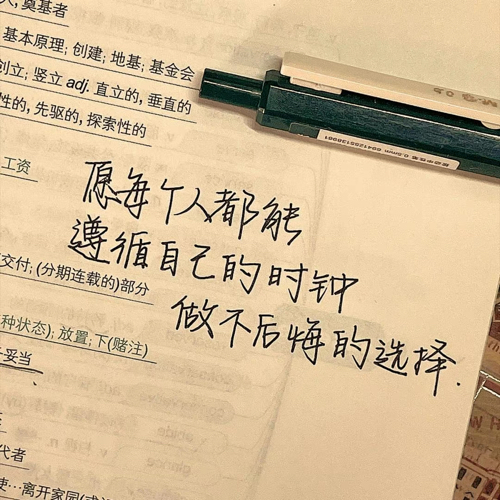 奠基者
基本原理; 创建; 地基; 基金会
创立; 竖立 adj. 直立的, 垂直的
性的, 先驱的, 探索性的
工资
愿每个人都能
遵循自己的时钟
交付; (分期连载的)部分
做不后悔的选择.
种状态); 放置; 下(赌注)
妥当
代者
使…离开家园
0.5mm 6941205138061